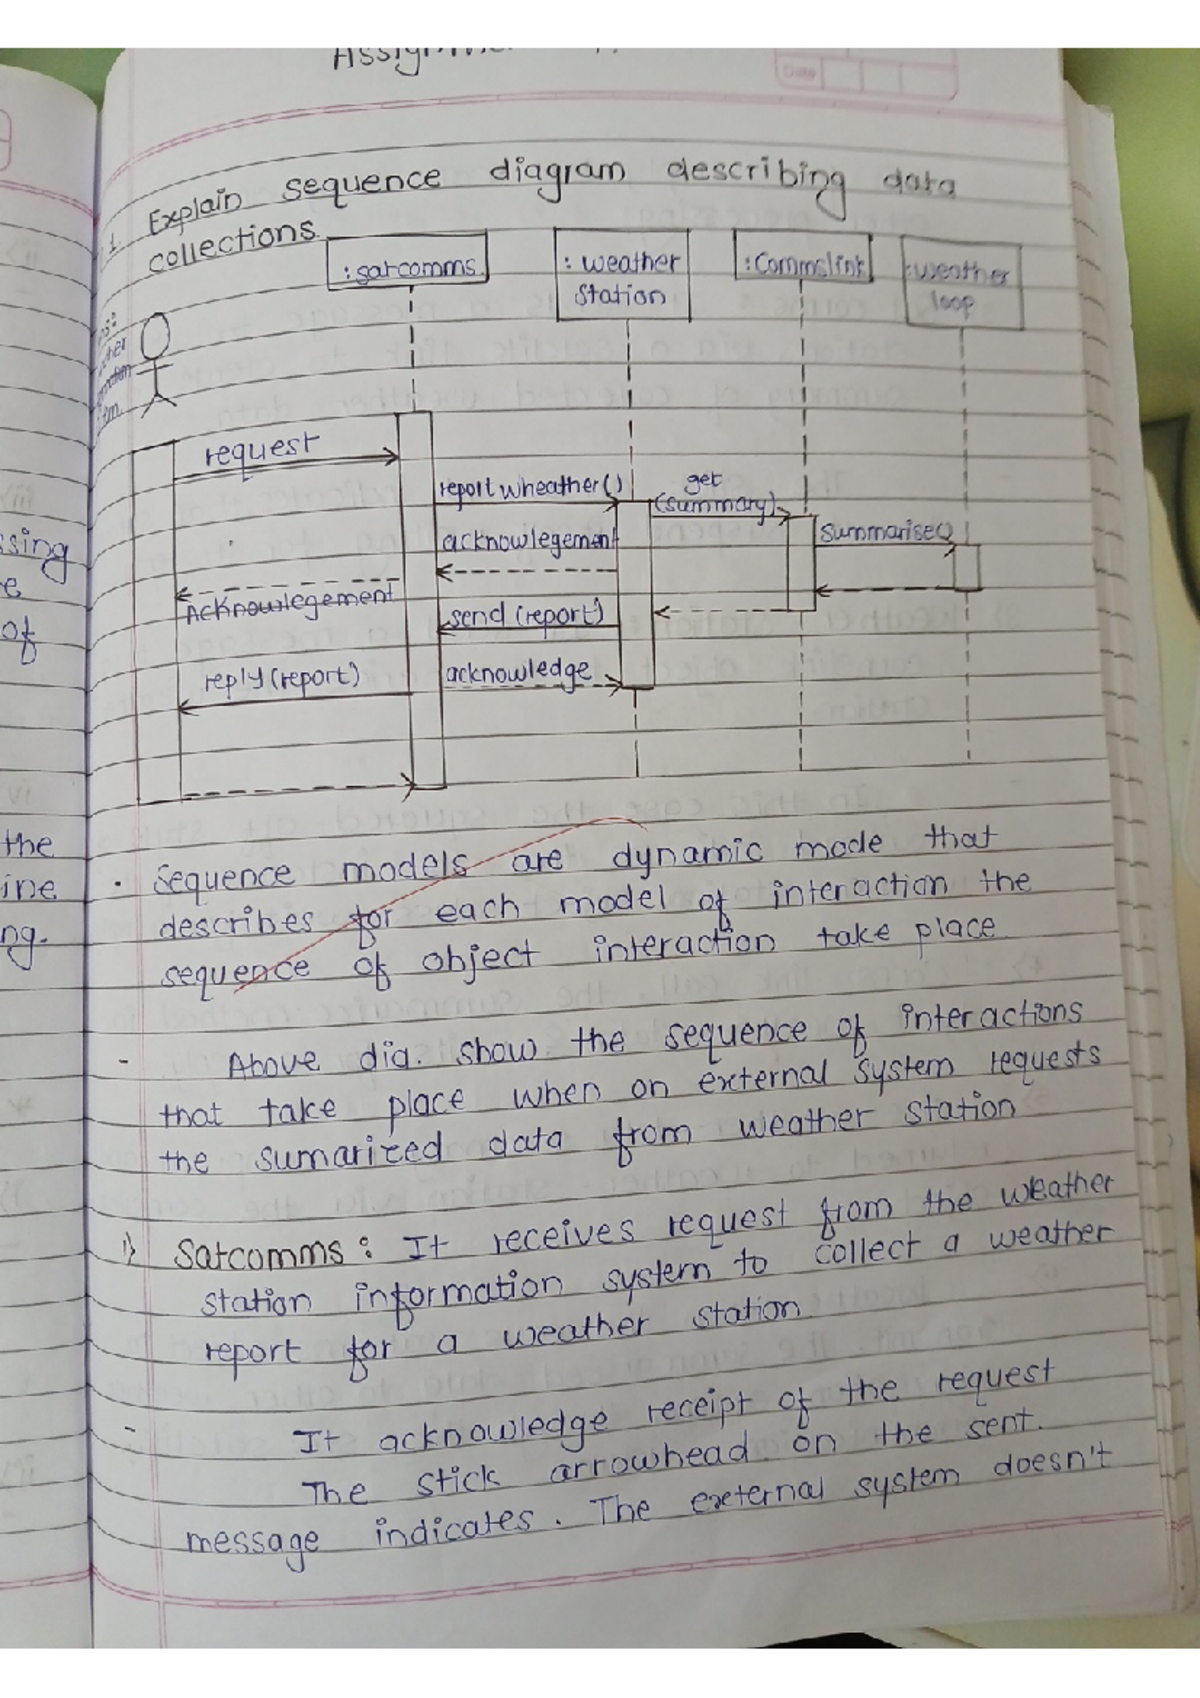 Date
1. Explain sequence diagram describing data
collections.
:satcomms
: weather
station
:Commslink
:weather
loop
request
reportwheather()
get
(summary)
summarise()
acknowlegement
Acknowlegement
send (report)
reply(report)
acknowledge
ssing
e
of
the
ine
ng.
· Sequence models are dynamic mode that
describes for each model of interaction the
sequence of object interaction take place
- Above dia. show the sequence of interactions
that take place when on external system requests
the sumarized data from weather station
1) Satcomms : It receives request from the weather
station information system to collect a weather
report for a weather station.
- It acknowledge receipt of the request
The stick arrowhead on the sent.
message indicates. The external system doesn't